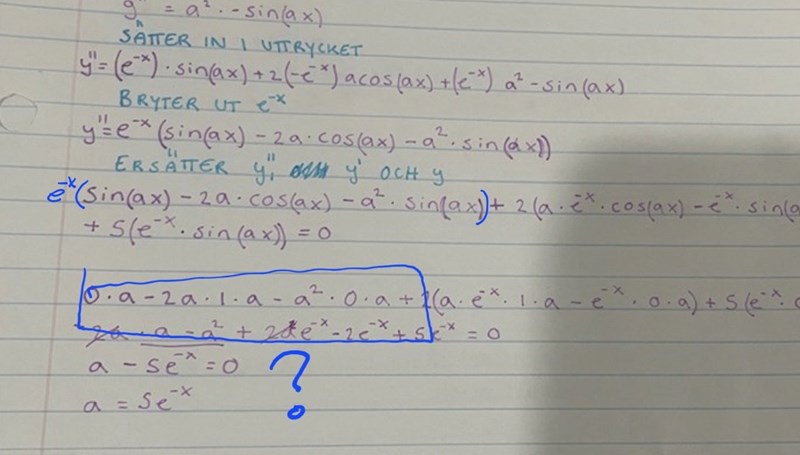 y'' = a² · -sin(ax)
SÄTTER IN I UTTRYCKET
y'' = (e^-x) · sin(ax) + 2(-e^-x) acos(ax) + (e^-x) a² - sin(ax)
BRYTER UT e^-x
y'' = e^-x (sin(ax) - 2a · cos(ax) - a² · sin(ax))
ERSÄTTER y'', y' OCH y
e^-x (sin(ax) - 2a · cos(ax) - a² · sin(ax)) + 2(a · e^-x · cos(ax) - e^-x · sin(a
+ 5(e^-x · sin(ax)) = 0
0 · a - 2a · 1 · a - a² · 0 · a + 2(a · e^-x · 1 · a - e^-x · 0 · a) + 5(e^-x ·
· a - a² + 2 e^-x - 2e^-x + 5e^-x = 0
a - 5e^-x = 0 ?
a = 5e^-x